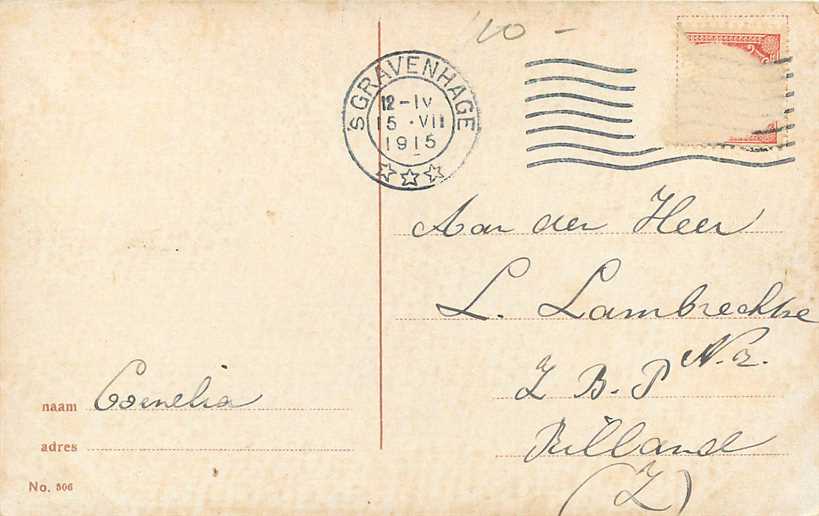 10 -
'S GRAVENHAGE
12-IV
15 . VII
1915
Aan den Heer
L. Lambrechtse
Z B. P No. 2.
Rilland
(Z)
naam Cornelia
adres
No. 506